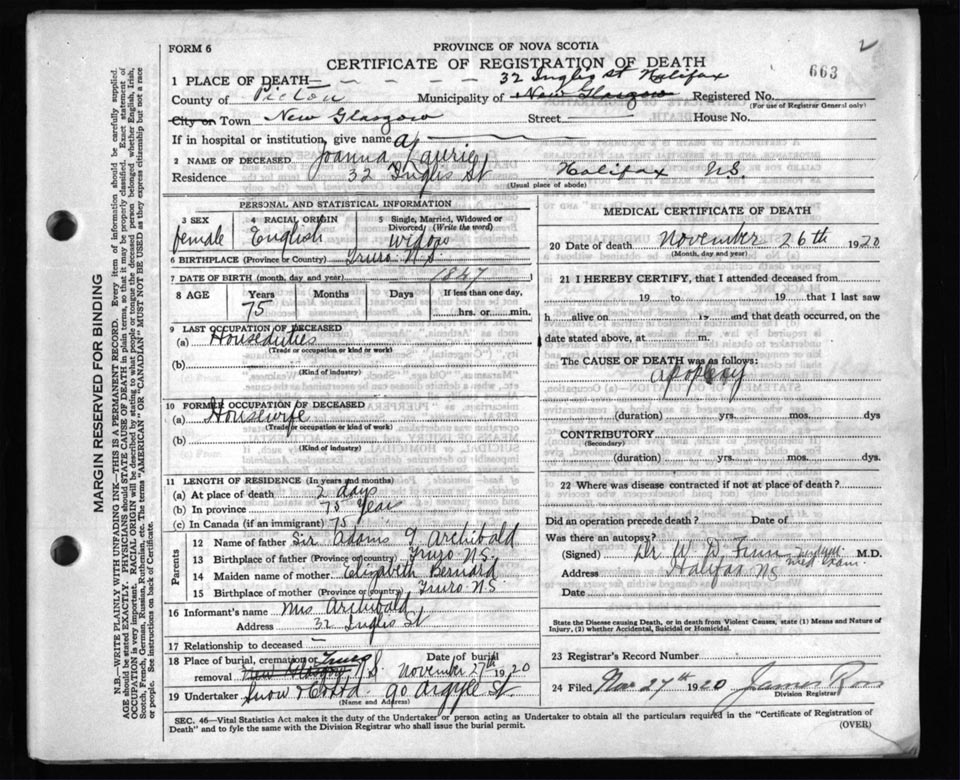 2
FORM 6
PROVINCE OF NOVA SCOTIA
CERTIFICATE OF REGISTRATION OF DEATH
663
1 PLACE OF DEATH— 32 Inglis St Halifax
County of Pictou Municipality of New Glasgow Registered No.
(For use of Registrar General only)
City or Town New Glasgow Street House No.
If in hospital or institution, give name
2 NAME OF DECEASED Joanna Laurie
Residence 32 Inglis St Halifax N.S.
(Usual place of abode)
PERSONAL AND STATISTICAL INFORMATION
3 SEX female
4 RACIAL ORIGIN English
5 Single, Married, Widowed or Divorced (Write the word) widow
6 BIRTHPLACE (Province or Country) Truro N.S.
7 DATE OF BIRTH (month, day and year) 1847
8 AGE Years Months Days If less than one day,
75 hrs. or min.
9 LAST OCCUPATION OF DECEASED
(a) Houseduties
(Trade or occupation or kind or work)
(b)
(Kind of industry)
10 FORMER OCCUPATION OF DECEASED
(a) Housewife
(Trade or occupation or kind or work)
(b)
(Kind of industry)
11 LENGTH OF RESIDENCE (In years and months)
(a) At place of death 2 days
(b) In province 75 Years
(c) In Canada (if an immigrant) 75
Parents
12 Name of father Sir Adams G Archibald
13 Birthplace of father (Province or country) Truro N.S.
14 Maiden name of mother Elizabeth Bernard
15 Birthplace of mother (Province or country) Truro N.S
16 Informant's name Mrs Archibald
Address 32 Inglis St
17 Relationship to deceased —
18 Place of burial, cremation or removal New Glasgow Truro N.S. Date of burial November 27th 1920
19 Undertaker Snow & Co Ltd. 90 Argyle St
(Name and Address)
MEDICAL CERTIFICATE OF DEATH
20 Date of death November 26th 1920
(Month, day and year)
21 I HEREBY CERTIFY, that I attended deceased from
19 to 19 that I last saw
h alive on 19 and that death occurred, on the
date stated above, at m.
The CAUSE OF DEATH was as follows:
apoplexy
(duration) yrs. mos. dys
CONTRIBUTORY
(Secondary)
(duration) yrs. mos. dys.
22 Where was disease contracted if not at place of death?
Did an operation precede death? Date of
Was there an autopsy?
(Signed) Dr. W D Finn Med exam. M.D.
Address Halifax NS
Date
State the Disease causing Death, or in death from Violent Causes, state (1) Means and Nature of
Injury, (2) whether Accidental, Suicidal or Homicidal.
23 Registrar's Record Number
24 Filed Nov 27th 1920 James Ross
Division Registrar
SEC. 46—Vital Statistics Act makes it the duty of the Undertaker or person acting as Undertaker to obtain all the particulars required in the "Certificate of Registration of
Death" and to fyle the same with the Division Registrar who shall issue the burial permit.
(OVER)
MARGIN RESERVED FOR BINDING
N.B.—WRITE PLAINLY WITH UNFADING INK—THIS IS A PERMANENT RECORD. Every item of information should be carefully supplied.
AGE should be stated EXACTLY. PHYSICIANS should STATE CAUSE OF DEATH in plain terms, so that it may be properly classified. Exact statement of
OCCUPATION is very important. RACIAL ORIGIN will be described by stating to what people or tongue the deceased person belonged whether English, Irish,
Scotch, French, German, Russian, Ruthenian, etc. The terms "AMERICAN" OR "CANADIAN" MUST NOT BE USED as they express citizenship but not a race
or people. See instructions on back of Certificate.